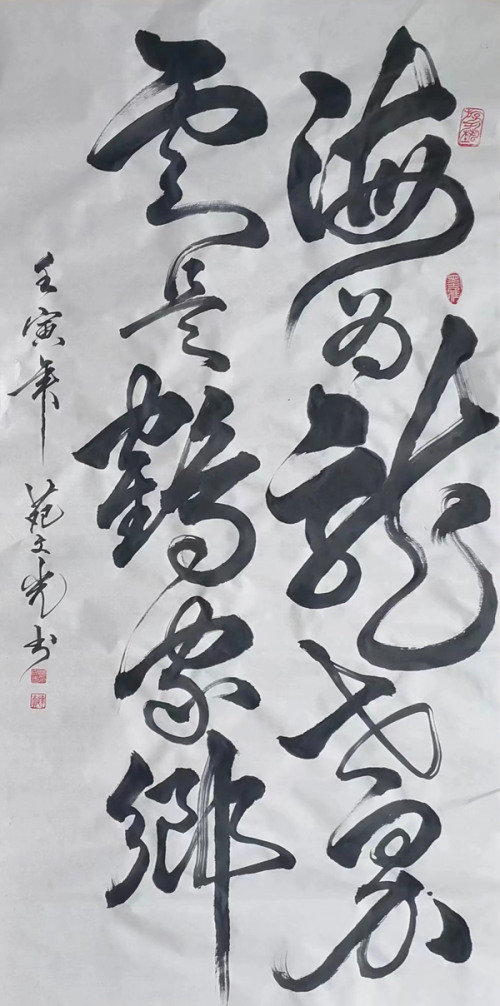 海为龙世界
雲是鹤家鄉
壬寅年 范文光书